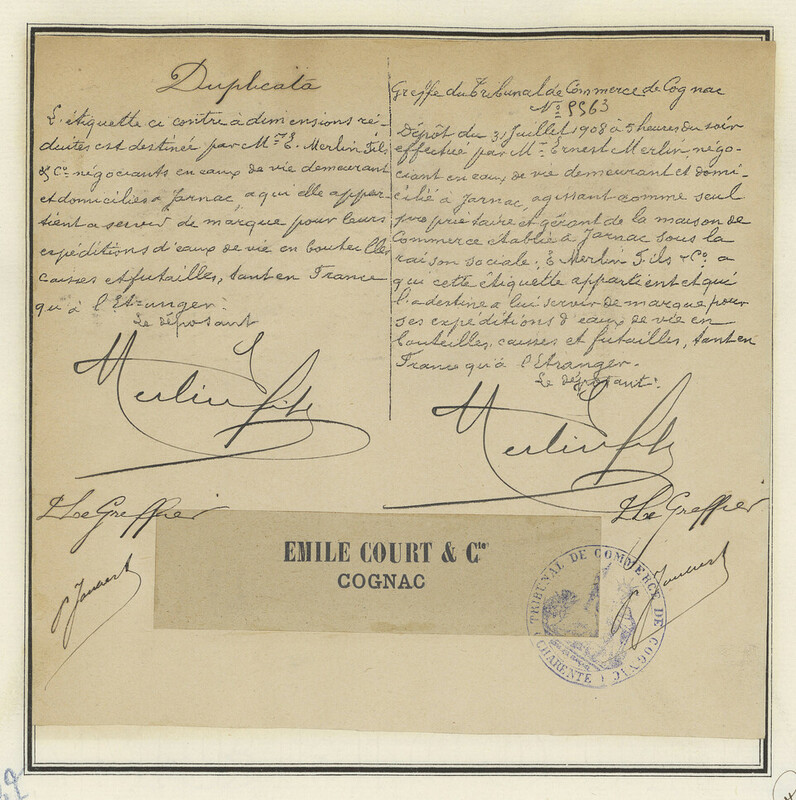 Duplicata
L'étiquette ci contre à dimensions ré-
duites est destinée par Mr E. Merlin Fils
& Co négociants en eaux de vie demeurant
et domiciliés à Jarnac, a qui elle appar-
tient a servir de marque pour leurs
expéditions d'eaux de vie en bouteilles
caisses et futailles, tant en France
qu'à l'Etranger.
Le déposant
Merlin fils
Le Greffier
Greffe du Tribunal de Commerce de Cognac
No 5563
Dépôt du 31 Juillet 1908 à 5 heures du soir
effectué par Mr Ernest Merlin, négo-
ciant en eaux de vie demeurant et domi-
cilié à Jarnac, agissant comme seul
propriétaire et gérant de la maison de
Commerce établie à Jarnac sous la
raison sociale: E Merlin Fils & Co. a
qui cette étiquette appartient et qui
l'a destine a lui servir de marque pour
ses expéditions d'eaux de vie en
bouteilles, caisses et futailles, tant en
France qu'à l'Etranger.
Le déposant:
Merlin fils
Le Greffier
EMILE COURT & Cie
COGNAC
TRIBUNAL DE COMMERCE DE COGNAC
CHARENTE